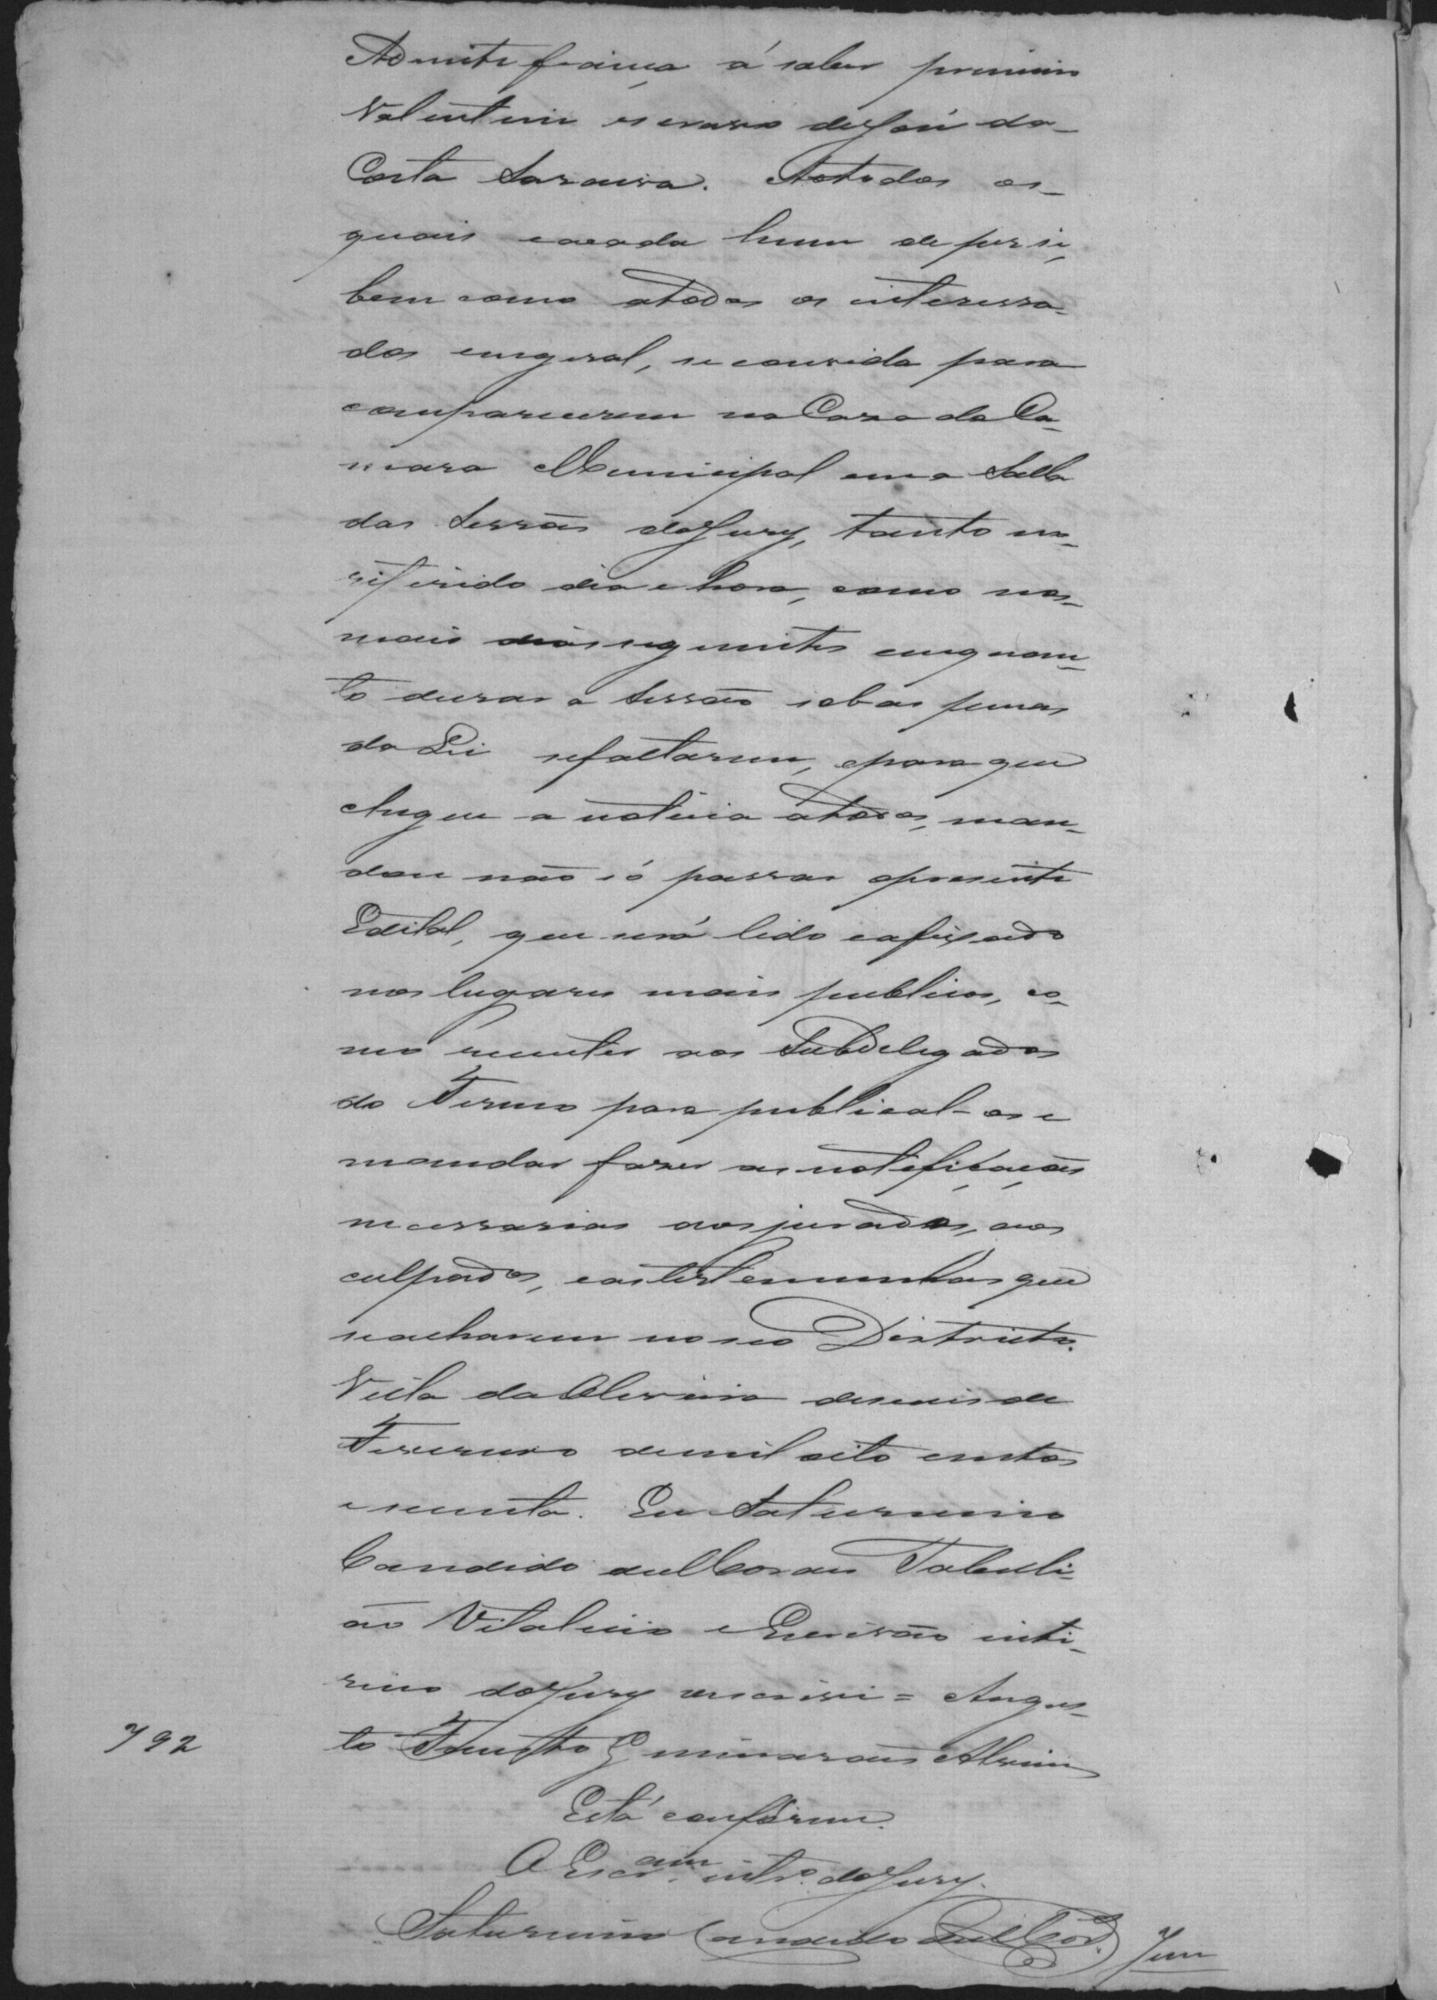 Admite fiança á saber primeiro
Valentim escravo de José da
Costa Saraiva. A todos os
quais e a cada hum de per si,
bem como a todos os interessa-
dos em geral, se convida para
comparecerem na Casa da Ca-
mara Municipal em a Salla
das Sessões do Jury, tanto no
referido dia e hora, como nos
mais dias seguintes emquan-
to durar a Sessão sob as penas
da Lei se faltarem, e para que
chegue a noticia a todos, man-
dou não só passar o presente
Edital, que será lido e afixado
nos lugares mais publicos, co-
mo remeter aos Subdelegados
do Termo para publical-os e
mandar fazer as notificações
necessarias aos jurados, aos
culpados, e as testemunhas que
se acharem no seo Districto.
Villa da Oliveira deseseis de
Fevereiro de mil oito centos
e secenta. Eu Saturnino
Candido de Moraes Tabelli-
ão Vitalicio e Escrivão inte-
rino do Jury o escrevi = Augus-
to Fausto Guimarães Alvim
792
Está conforme.
O Escram. intro. do Jury.
Saturnino Candido de